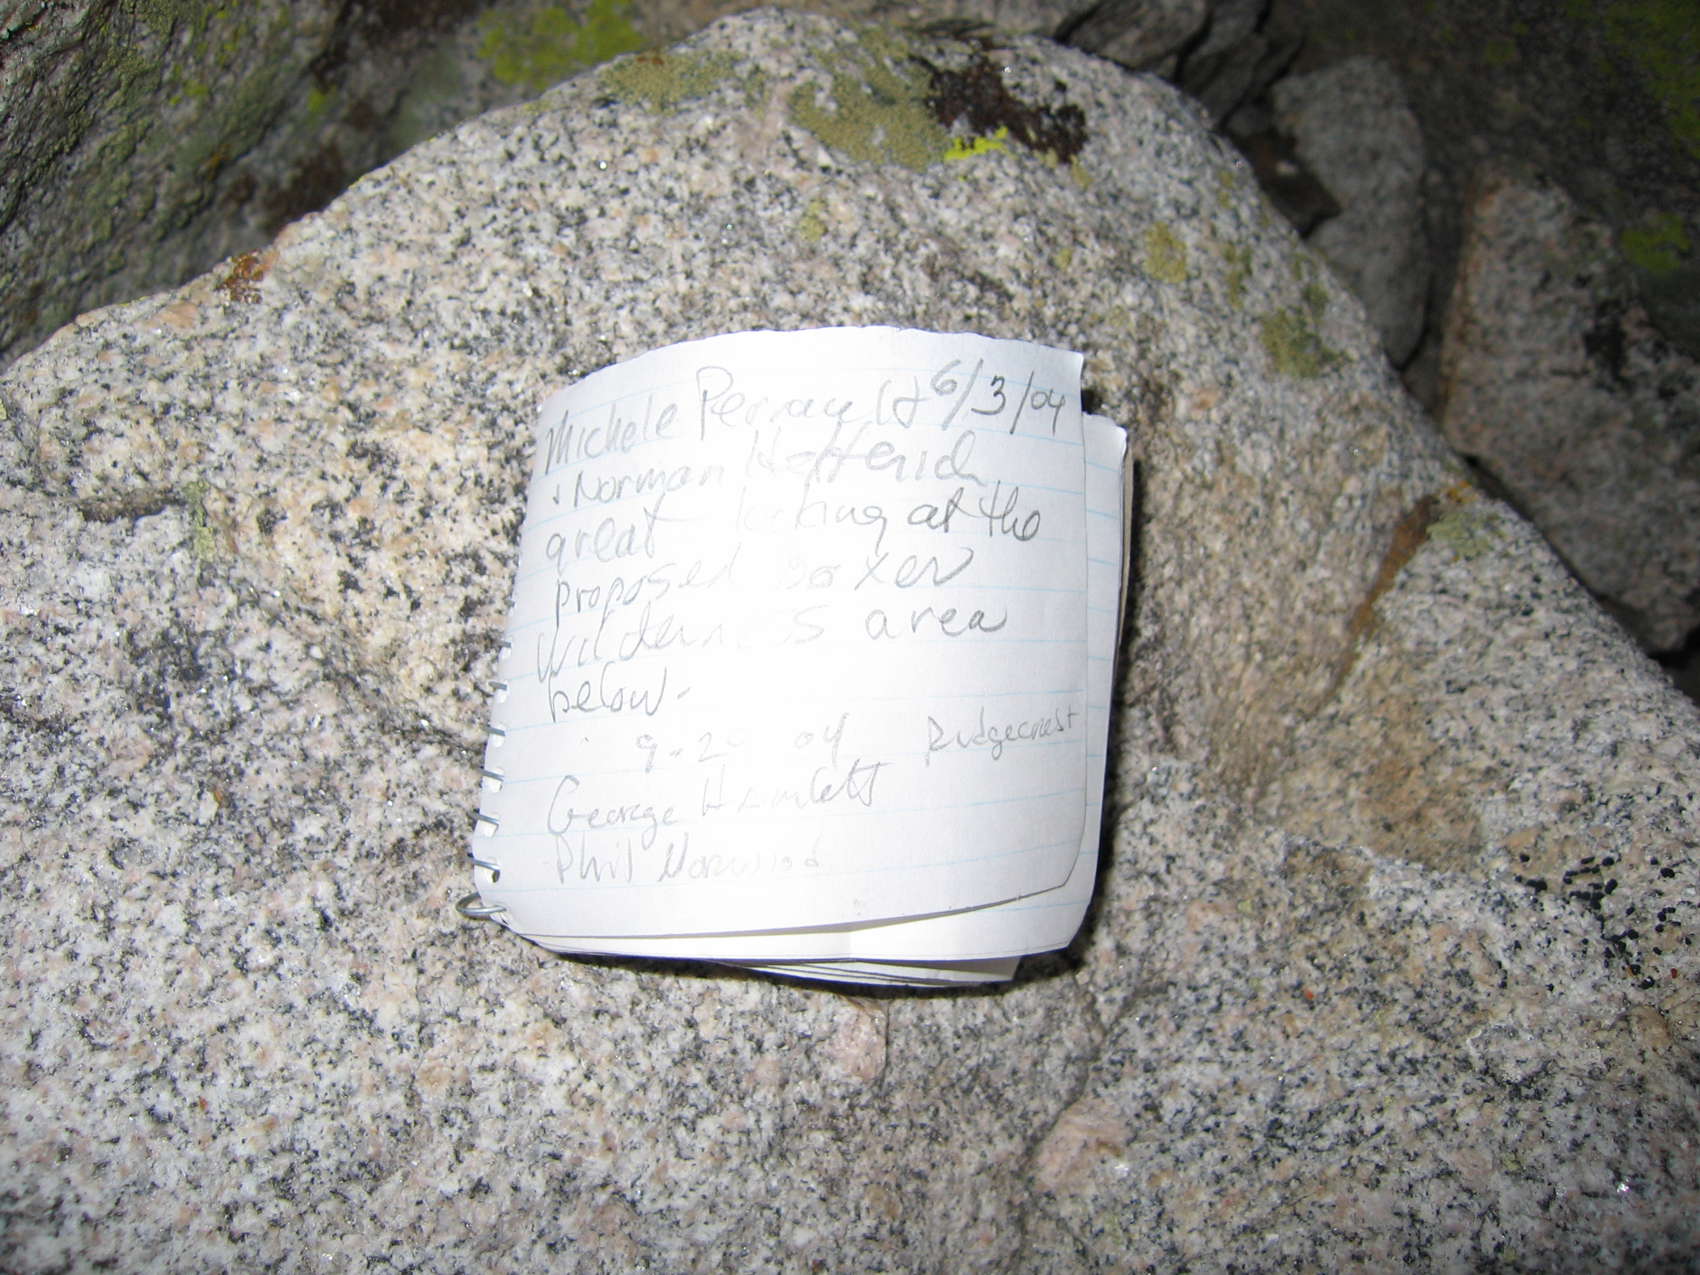 Michele Perrault 6/3/04
+ Norman
great looking at the
proposed Boxer
Wilderness area
below.
04 Ridgecrest
George
Phil Norwood